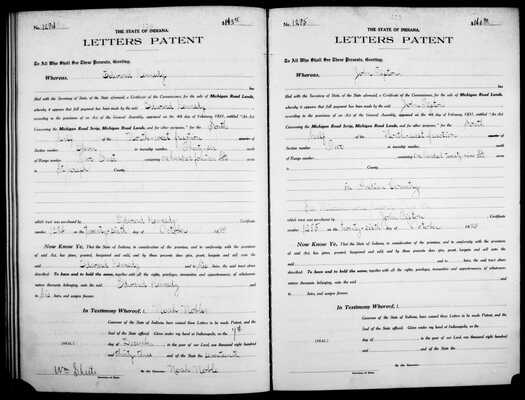 No. 1294
THE STATE OF INDIANA.
LETTERS PATENT
To All Who Shall See These Presents, Greeting.
Whereas, Edward Kennedy
has
filed with the Secretary of State, of the State aforesaid, a Certificate of the Commissioner, for the sale of Michigan Road Lands,
whereby it appears that full payment has been made by the said Edward Kennedy
according to the provisions of an Act of the General Assembly, approved on the 4th day of February 1832, entitled "An Act
Concerning the Michigan Road Scrip, Michigan Road Lands, and for other purposes," for the North
half Northwest fraction quarter of
Section township
of Range number containing
in County,
which tract was purchased by Edward Kennedy Certificate
number 1294 on the twenty sixth day of October
Now Know Ye, That the State of Indiana, in consideration of the premises, and in conformity with the provisions of
said Act, has given, granted, bargained and sold, and by these presents does give, grant, bargain and sell unto the
said Edward Kennedy and to his heirs, the said tract above
described. To have and to hold the same, together with all the rights, privileges, immunities and appurtenances, of whatsoever
nature thereunto belonging, unto the said Edward Kennedy
and
to his heirs, and assigns forever.
In Testimony Whereof, I, Noah Noble
Governor of the State of Indiana, have caused these Letters to be made Patent, and the
Seal of the State affixed. Given under my hand at Indianapolis, on the 7th
(SEAL) day of in the year of our Lord, one thousand eight hundred
and thirty three and of the State the
Wm Sheets By the Governor: Noah Noble
Secretary of State.
No. 1295
THE STATE OF INDIANA.
LETTERS PATENT
To All Who Shall See These Presents, Greeting.
Whereas, John
has
filed with the Secretary of State, of the State aforesaid, a Certificate of the Commissioner, for the sale of Michigan Road Lands,
whereby it appears that full payment has been made by the said John
according to the provisions of an Act of the General Assembly, approved on the 4th day of February 1832, entitled "An Act
Concerning the Michigan Road Scrip, Michigan Road Lands, and for other purposes," for the North
half Northwest fraction quarter of
Section township
of Range number containing
in County,
In Indian Country
which tract was purchased by John Certificate
number 1295 on the twenty sixth day of October
Now Know Ye, That the State of Indiana, in consideration of the premises, and in conformity with the provisions of
said Act, has given, granted, bargained and sold, and by these presents does give, grant, bargain and sell unto the
said and to heirs, the said tract above
described. To have and to hold the same, together with all the rights, privileges, immunities and appurtenances, of whatsoever
nature thereunto belonging, unto the said
and
to heirs, and assigns forever.
In Testimony Whereof, I,
Governor of the State of Indiana, have caused these Letters to be made Patent, and the
Seal of the State affixed. Given under my hand at Indianapolis, on the
(SEAL) day of in the year of our Lord, one thousand eight hundred
and and of the State the
By the Governor:
Secretary of State.